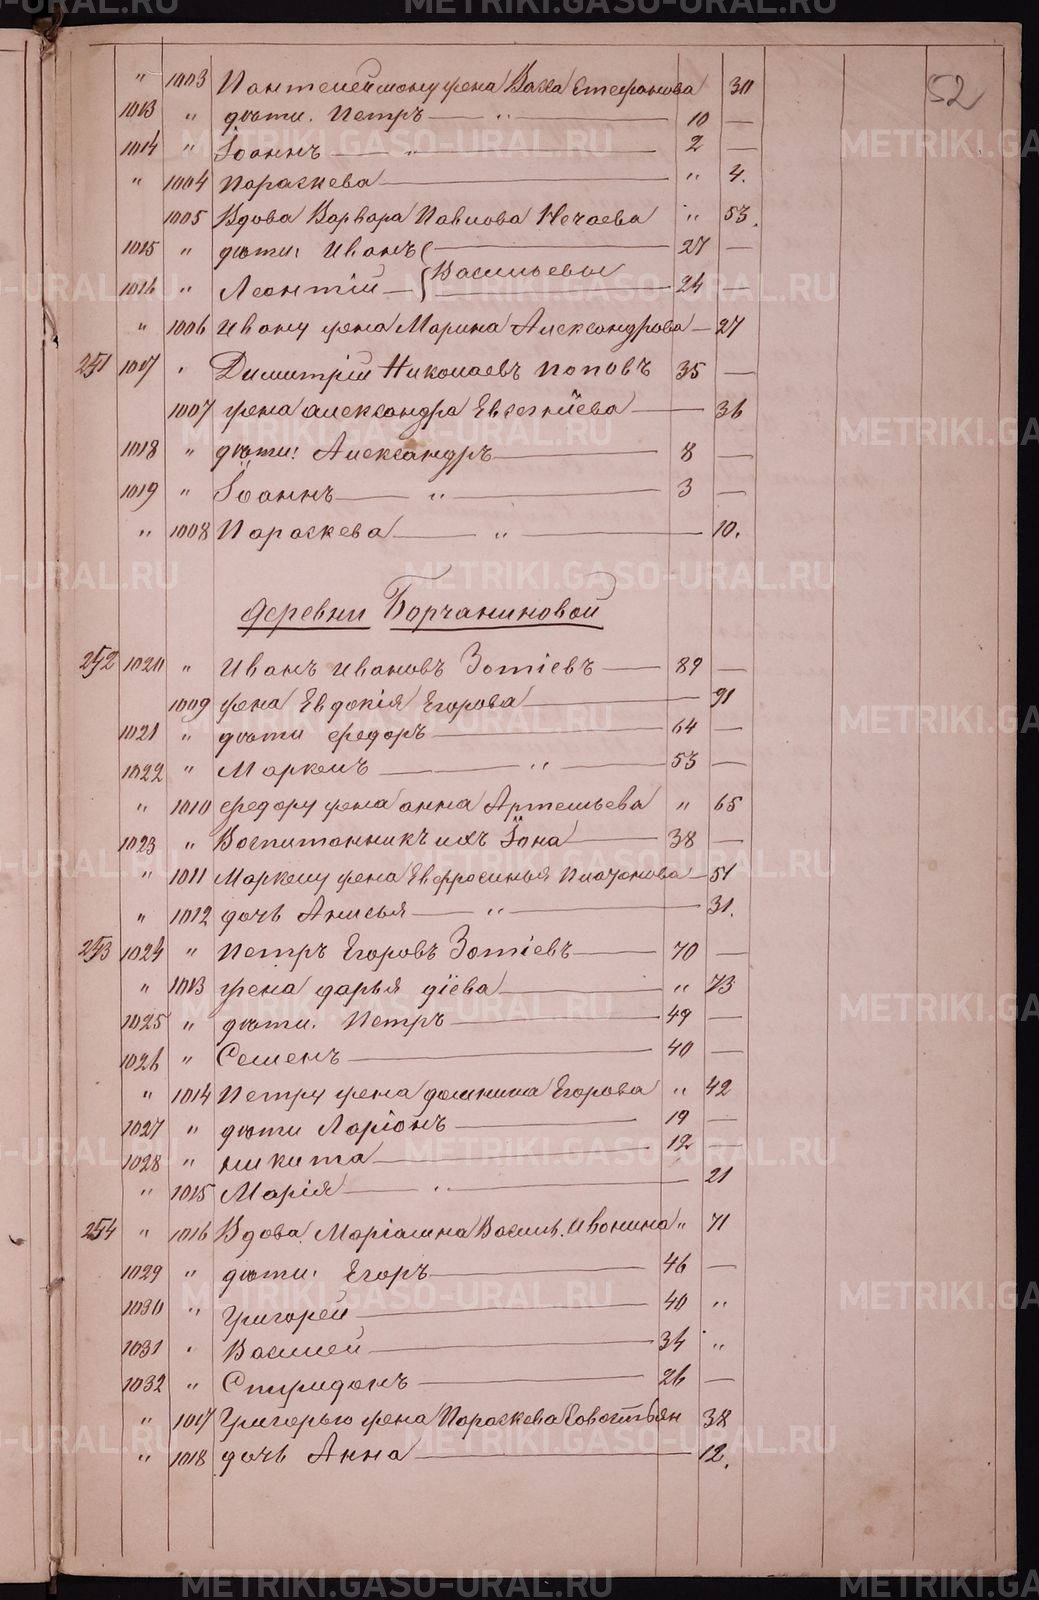 52
" 1003 Пантелеймону жена Васса Стефанова 30
1013 " дѣти: Петръ — " — 10 —
1014 " Іоаннъ — " — 2 —
" 1004 Параскева — " 4.
1005 Вдова Варвара Павлова Нечаева " 53.
1015 " дѣти: Иванъ — 27 —
1016 " Леонтій — Васильевы — 24 —
" 1006 Ивану жена Марина Александрова — 27
251 1017 " Димитрій Николаевъ Поповъ 35 —
1007 жена Александра Евсегнѣева — 36
1018 " дѣти: Александръ — 8 —
1019 " Іоаннъ — " — 3 —
" 1008 Параскева — " — 10.
Деревни Борчаниновой
252 1020 " Иванъ Ивановъ Зотіевъ — 89 —
1009 жена Евдокія Егорова — 91
1021 " дѣти Федоръ — 64 —
1022 " Маркелъ — " — 53 —
" 1010 Федору жена Анна Артемьева " 65
1023 " Воспитанникъ ихъ Іона — 38 —
" 1011 Маркелу жена Евфросинья Платонова — 51
" 1012 дочь Анисья — " — 31.
253 1024 " Петръ Егоровъ Зотіевъ — 70 —
" 1013 жена Дарья Діева — " 73
1025 " дѣти: Петръ — 49 —
1026 " Семенъ — 40 —
" 1014 Петру жена Домнина Егорова " 42
1027 " дѣти Ларіонъ — 19 —
1028 " Никита — 12 —
" 1015 Марія — " — 21
254 " 1016 Вдова Маріамна Васил. Ивонина " 71
1029 " дѣти: Егоръ — 46 —
1030 " Григорей — 40 "
1031 " Василей — 34 "
1032 " Спиридонъ — 26 —
" 1017 Григорью жена Параскева Совостьян 38
" 1018 дочь Анна — 12.
METRIKI.GASO-URAL.RU